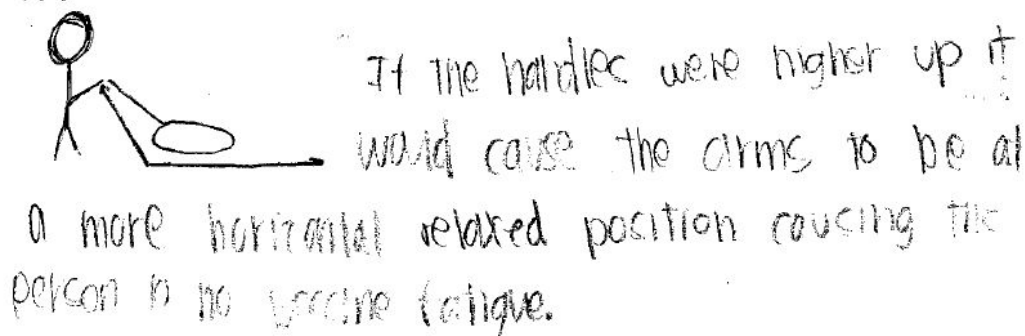 If the handles were higher up it
would cause the arms to be at
a more horizontal relaxed position causing the
person to no fatigue.